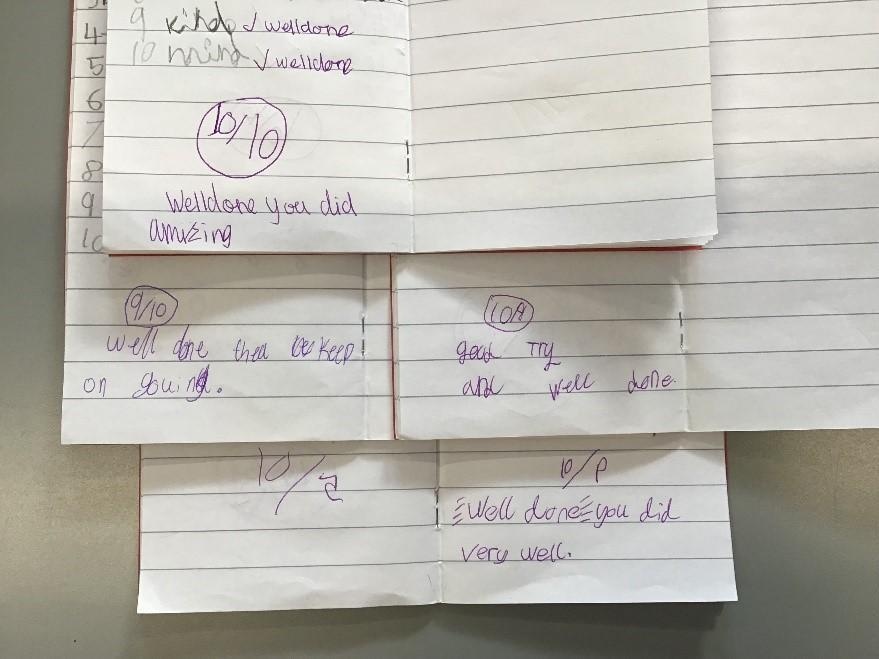 4
5
6
7
8
9
10
9 kind ✓ welldone
10 mind ✓ welldone
10/10
Welldone you did
amazing
9/10
well done thea keep
on gouing.
10
good Try
and well done.
10/
10/
Well done you did
very well.